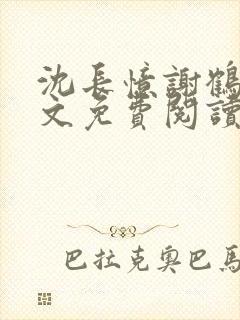 沈長憶謝鶴
文免費閱讀
巴拉克奧巴馬